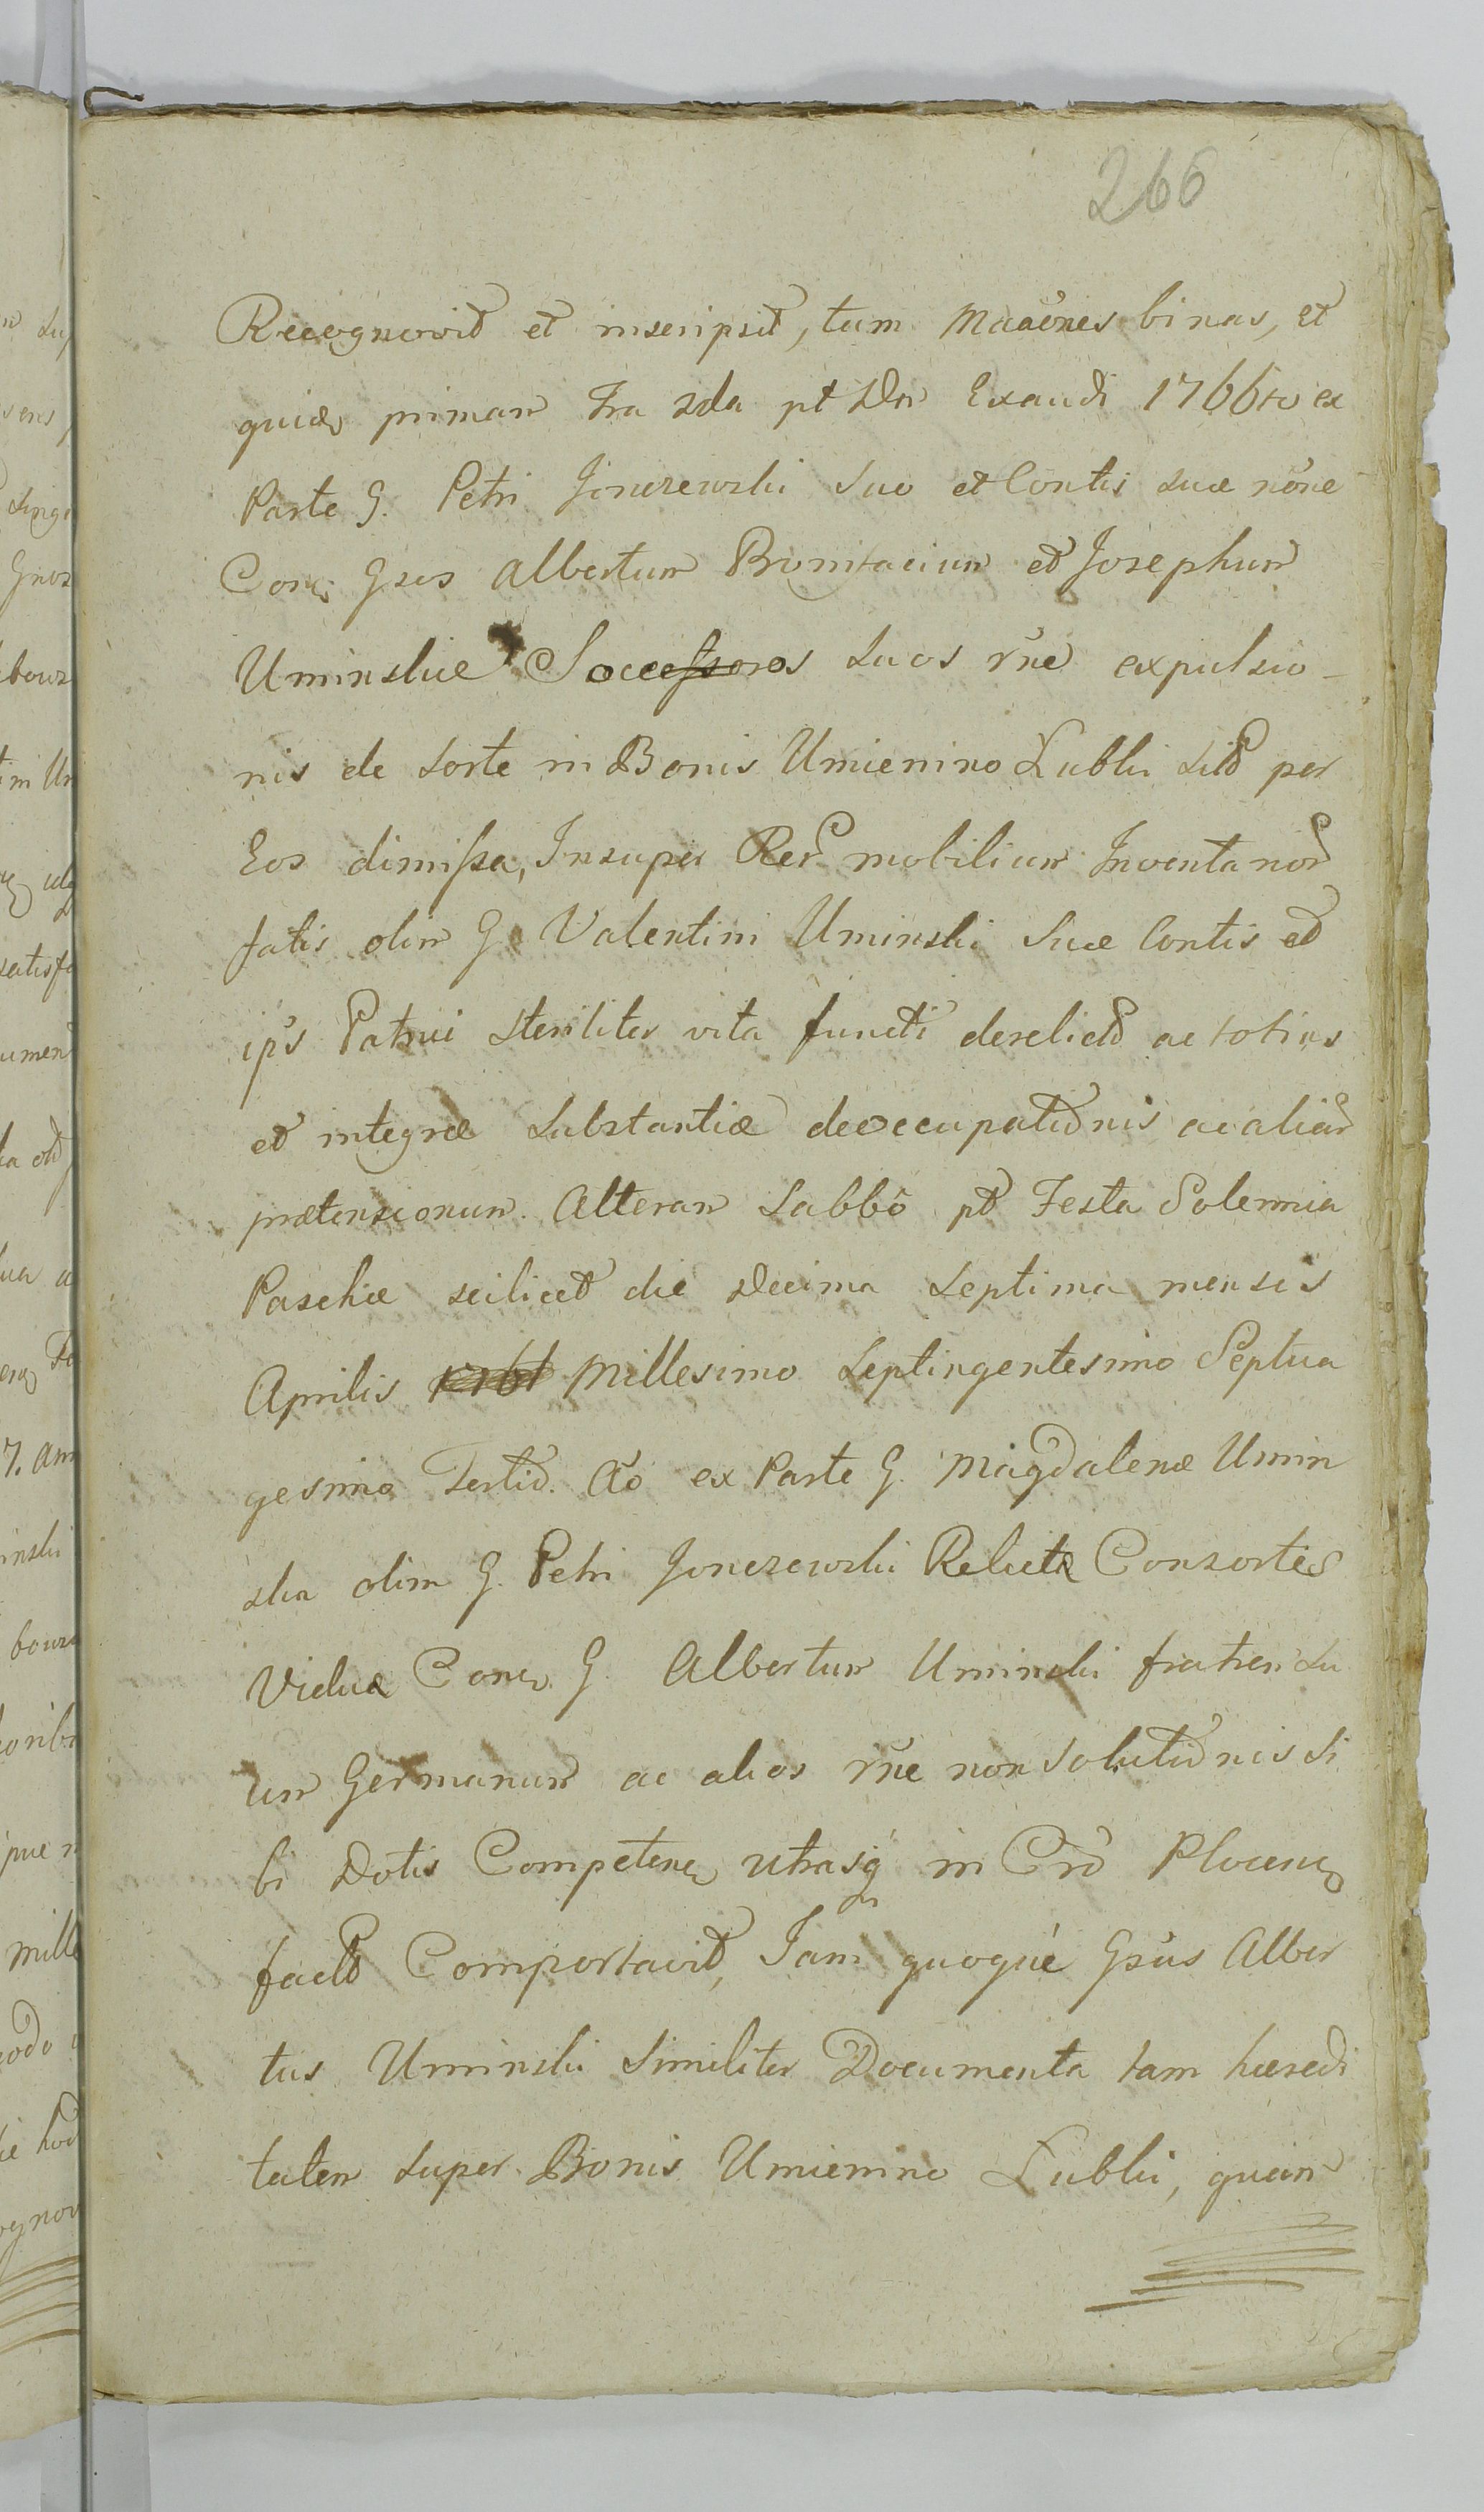 266
Recognovit et inscripsit, tum Maãones binas, et
quidẽ primam Fra 2da pt Dn̄ Exaudi 1766to ex
Parte G. Petri Jonczewski Suo et Contis suæ nõne
Conẽ Gsos Albertum Bonifacium et Josephum
Uminskie Soccessoros Suos rñe expulsio-
nis de Sorte in Bonis Umienino Łubki sitt per
Eos dimissa, Insuper Rer̃ mobilium Inventarior̃
fatis olim G. Valentini Uminski Suæ Contis et
ip̃s Patrui steriliter vita functi derelictt ac totius
et integræ Substantiæ deoccupationis ac aliar̃
prætensionum. Alteram Sabbõ pt Festa Solemnia
Paschæ scilicet die Decima Septima mensis
Aprilis Millesimo Septingentesimo Septua
gesimo Tertio. Aõ ex Parte G. Magdalenæ Umin
ska olim G. Petri Jonczewski Relictæ Consortis
Viduæ Conẽ G. Albertum Uminski fratrem Su
um Germanum ac alios rñe non Solutionis Si
bi Dotis Competenẽ utrasq̃ in Crõ Plocenẽ
factt Comportavit, Jam quoque Gsus Alber
tus Uminski Similiter Documenta tam hæredi
tatem super Bonis Umienino Łubki, quam